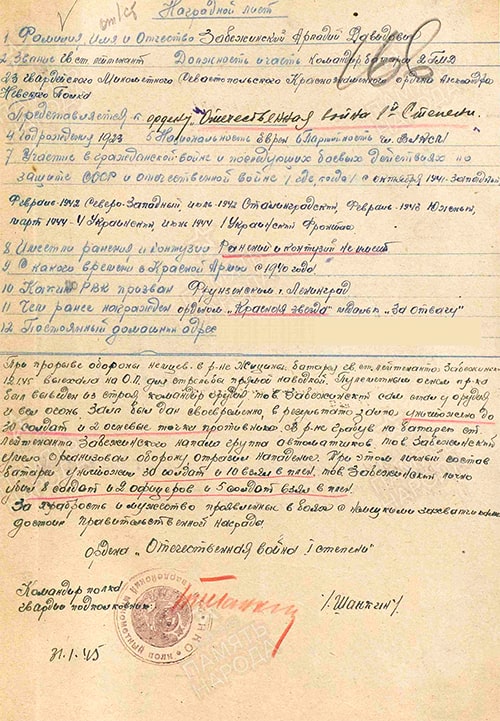 Наградной лист
1 Фамилия, имя и Отчество Забежинский Аркадий Давидович
2 Звание гв. ст. лейтенант Должность и часть командир батареи
23 гвардейского Минометного Севастопольского Краснознаменного ордена Александра
Невского Полка
Представляется к ордену "Отечественная война 1й Степени.
4 год рождения 1923 5 Национальность Еврей 6 Партийность чл. ВЛКСМ
7 Участие в гражданской войне и последующих боевых действиях по
защите СССР и отечественной войне (где когда) с октября 1941- Западный
Февраль-1942 Северо-Западный, июль 1942 Сталинградский, Февраль-1943 Южный,
март 1944 4 Украинский, июнь 1944 1 Украинский Фронтах
8 Имеет ли ранения и контузии Ранений и контузий не имеет
9 С какого времени в Красной Армии с 1940 года
10 Каким РВК призван Фрунзенским г. Ленинград
11 Чем ранее награжден орденом "Красная звезда" медалью "За отвагу"
12 Постоянный домашний адрес
При прорыве обороны немцев в р-не батарея гв. ст. лейтенанта Забежинского
12.1.45 выехала на О.П. для стрельбы прямой наводкой. Пулеметным огнем
был выведен из строя командир орудия тов Забежинский сам стал у орудия
и вел огонь. Залп был дан своевременно, в результате уничтожено до
20 солдат и 2 огневые точки противника. В р-не на батарею ст
лейтенанта Забежинского напала группа автоматчиков тов Забежинский
умело организовал оборону отразил нападение. При этом личный состав
батареи уничтожил 30 солдат и 10 взял в плен. тов Забежинский лично
убил 8 солдат и 2 офицеров и 5 солдат взял в плен.
За храбрость и мужество проявленные в боях с немецкими захватчиками
достоин правительственной награды
ордена "Отечественная война I степени"
Командир полка
гвардии подполковник: /Шанкин/
31.1.45
ПАМЯТЬ
НАРОДА